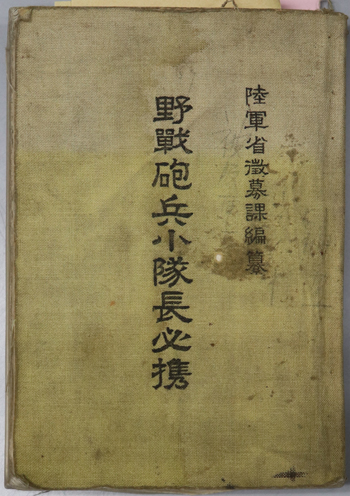 陸軍省徴募課編纂
野戰砲兵小隊長必携